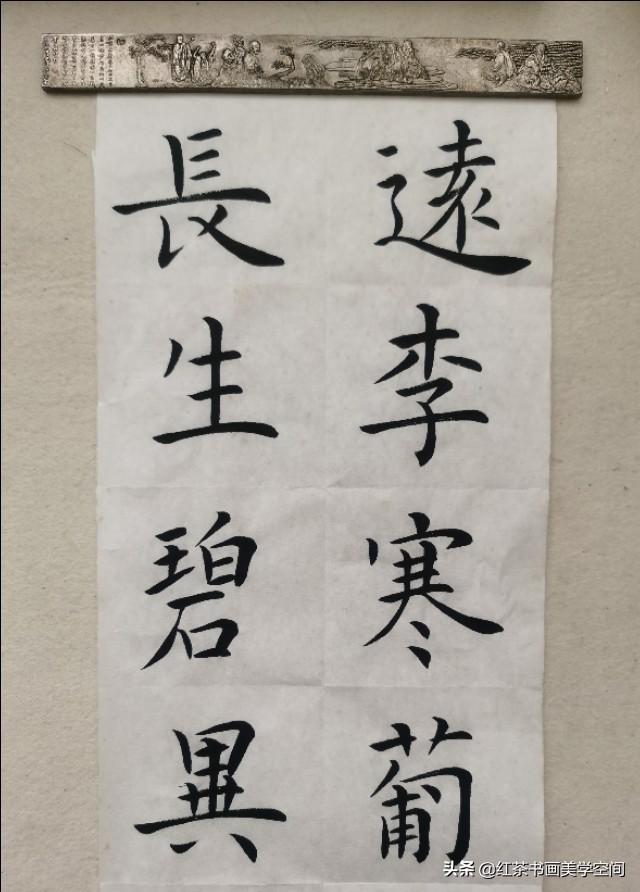 遠李寒葡
長生碧異
头条 @红茶书画美学空间